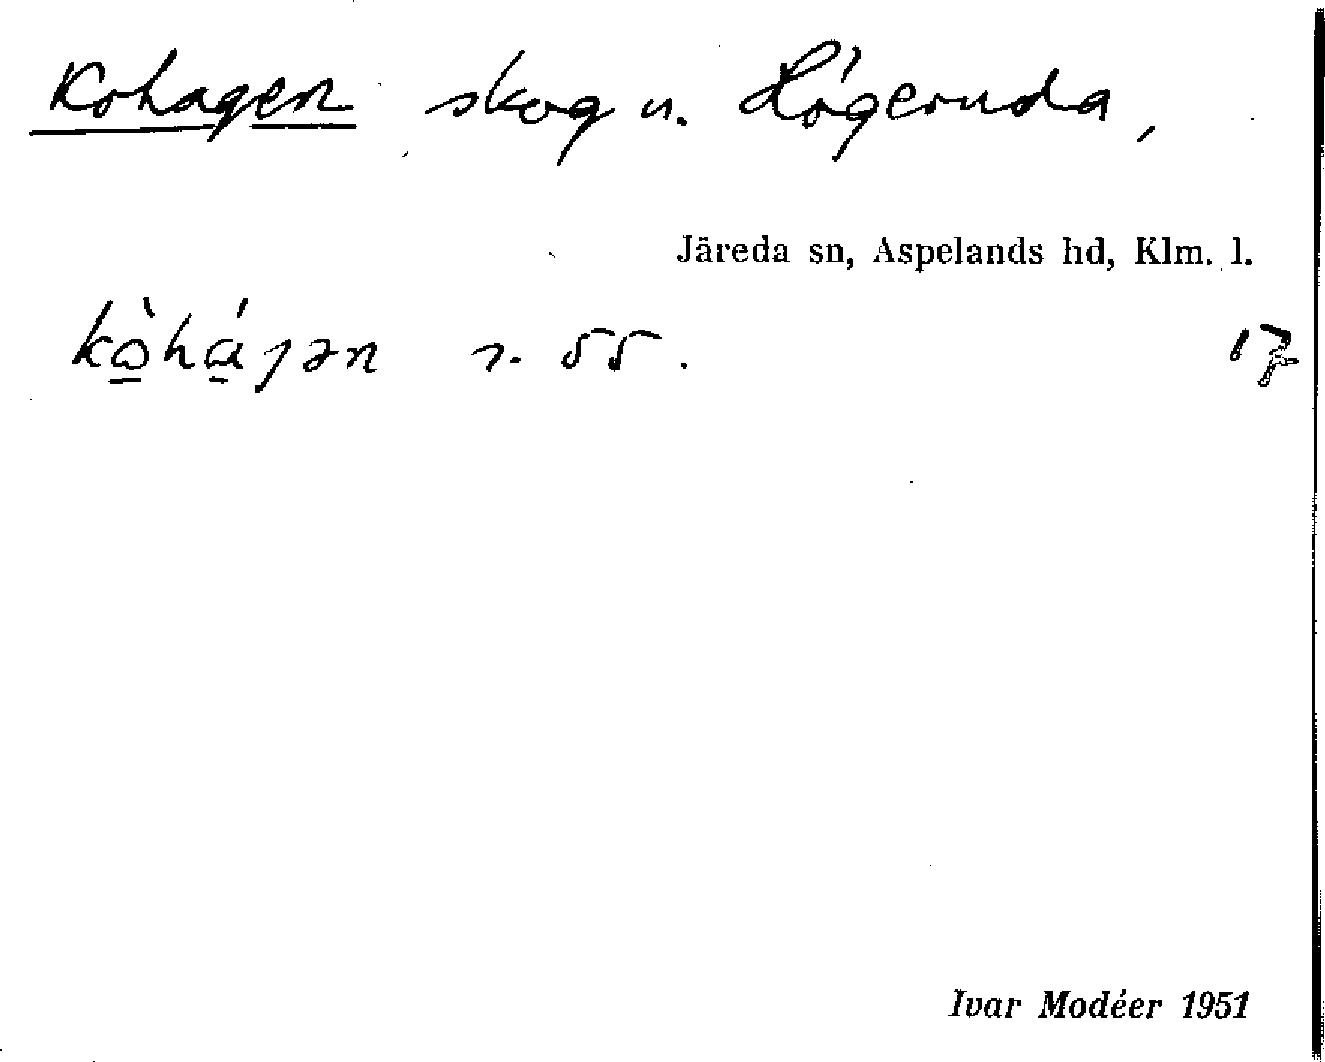 Kohagen skog u. Högeruda,
Järeda sn, Aspelands hd, Klm. l.
kòhájən s. 55. 17
Ivar Modéer 1951